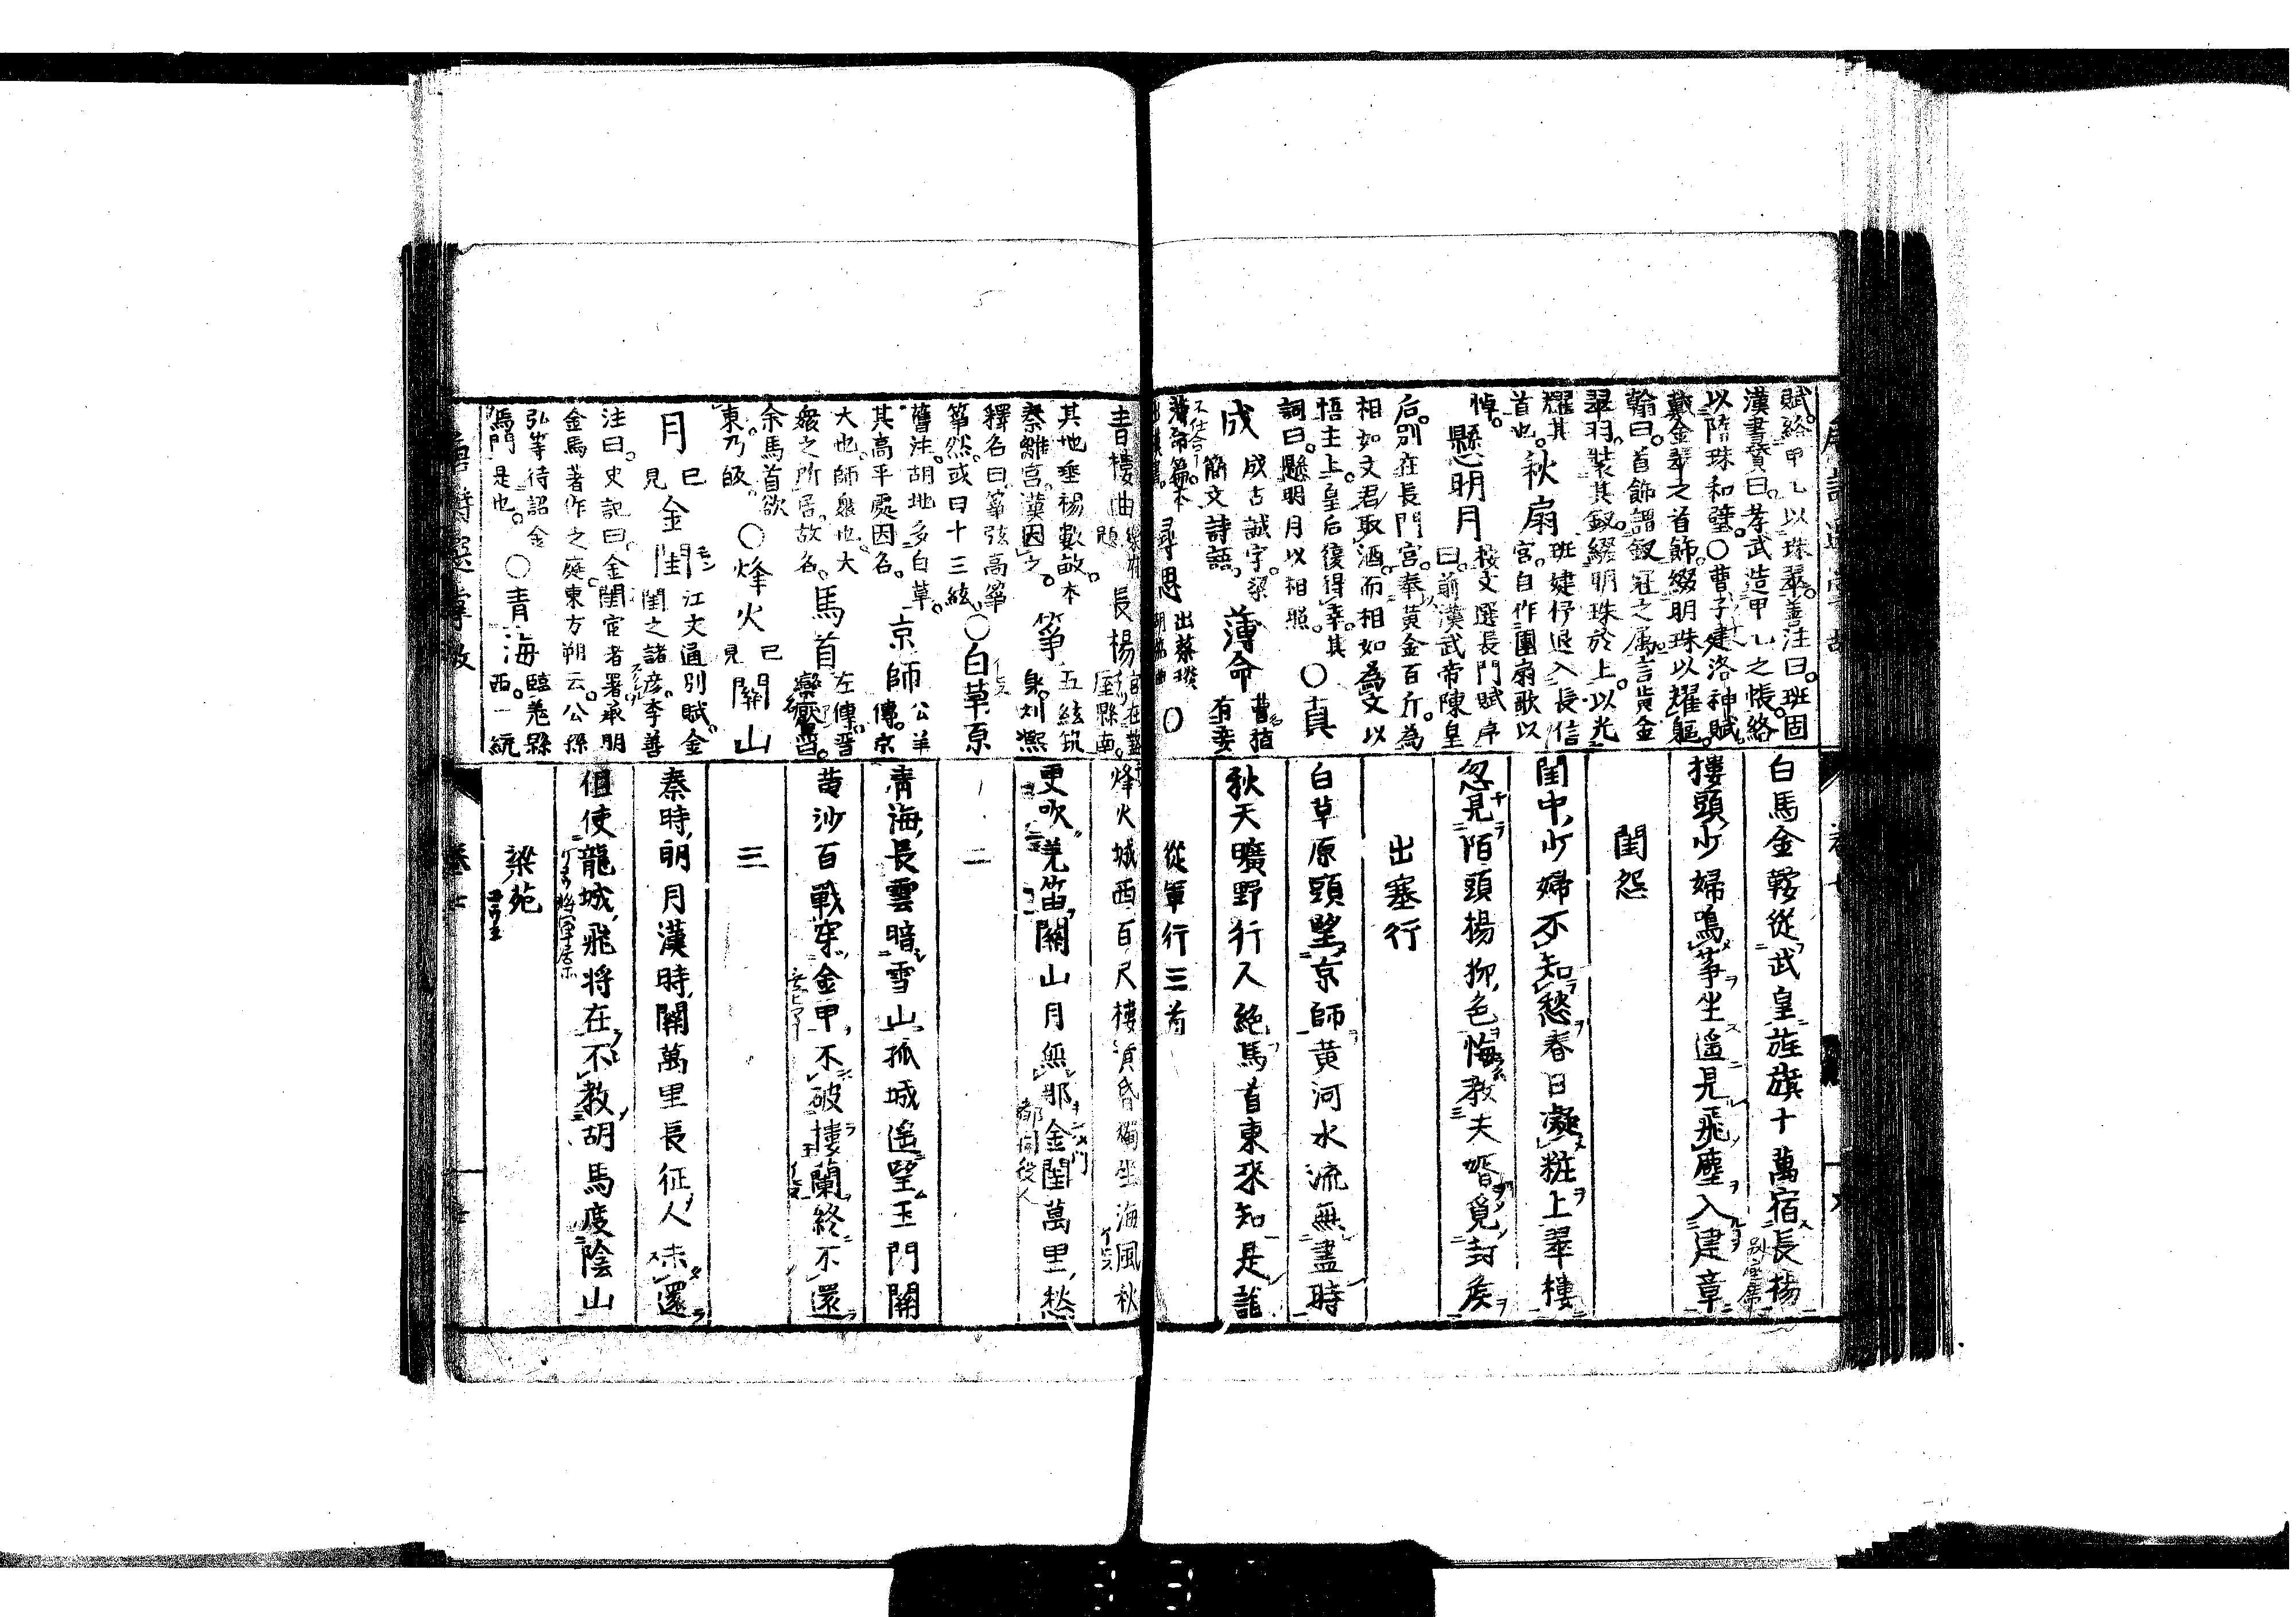 賦。絡甲乙以珠翠。善注曰。班固
漢書贊曰。孝武造甲乙之帳。絡
以隋珠和璧。〇曹子建洛神賦。
戴金翠之首飾。綴明珠以耀軀。
翰曰。首飾謂釵冠之属。言黄金
翠羽。裝其釵。綴明珠於上。以光
耀其
首也。
秋扇
班婕伃退入長信
宮。自作團扇歌以
悼。
懸明月
按文選長門賦序
曰。前漢武帝陳皇
后。別在長門宮。奉黃金百斤。為
相如文君取酒。而相如為文以
悟主上。皇后復得幸。其
詞曰。懸明月以相照。
〇真
成
成古誠字。梁
簡文詩語。
薄命
曹植
有妾
薄命篇。本
尋思
出蔡琰
〇
白馬金鞍從武皇旌旗十萬宿長楊
樓頭少婦鳴筝坐遥見飛塵入建章
閨怨
閨中少婦不知愁春日凝粧上翠樓
忽見陌頭楊柳色悔教夫婿覓封侯
出塞行
白草原頭望京師黄河水流無盡時
秋天曠野行人絶馬首東來知是誰
從軍行三首
青樓曲
長楊
其地垂楊數畝。本
秦離宮。漢因之。
筝
五絃筑
身。刘熙
釋名曰。筝弦高筝
筝然。或曰十三絃。
〇白草原
舊注。胡地多白草。
其高平處因名。
京師
公羊
傳。京
大也。師衆也。大
衆之所居。故名。
馬首
左傳。晋
欒黶曰。
余馬首欲
東。乃皈。
〇烽火
已
見
關山
月
已
見
金閨
江文通別賦。金
閨之諸彦。李善
注曰。史記曰。金閨宦者署。承明
金馬著作之庭。東方朔云。公孫
弘等待詔金
馬門是也。
〇青海
臨羗縣
西。一統
烽火城西百尺樓黄昏獨坐海風秋
更吹羌笛關山月無那金閨萬里愁
二
青海長雲暗雪山孤城遥望玉門關
黄沙百戰穿金甲不破樓蘭終不還
三
秦時明月漢時關萬里長征人未還
但使龍城飛将在不教胡馬度陰山
梁苑